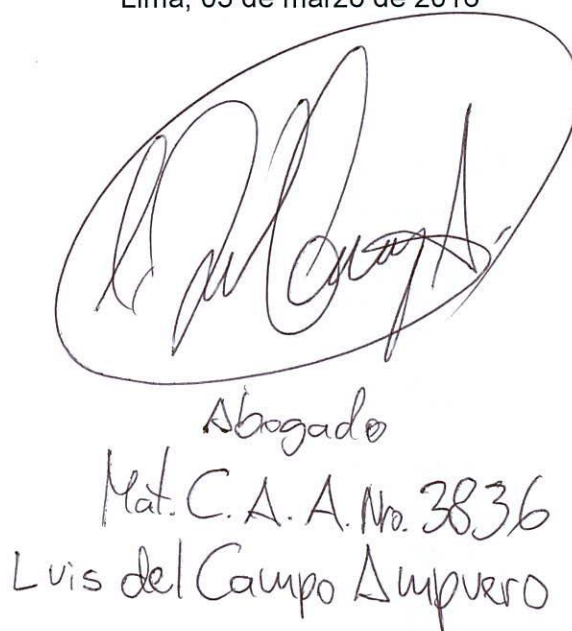 Lima, 05 de marzo de 2018
Abogado
Mat. C. A. A. Nro. 3836
Luis del Campo Ampuero